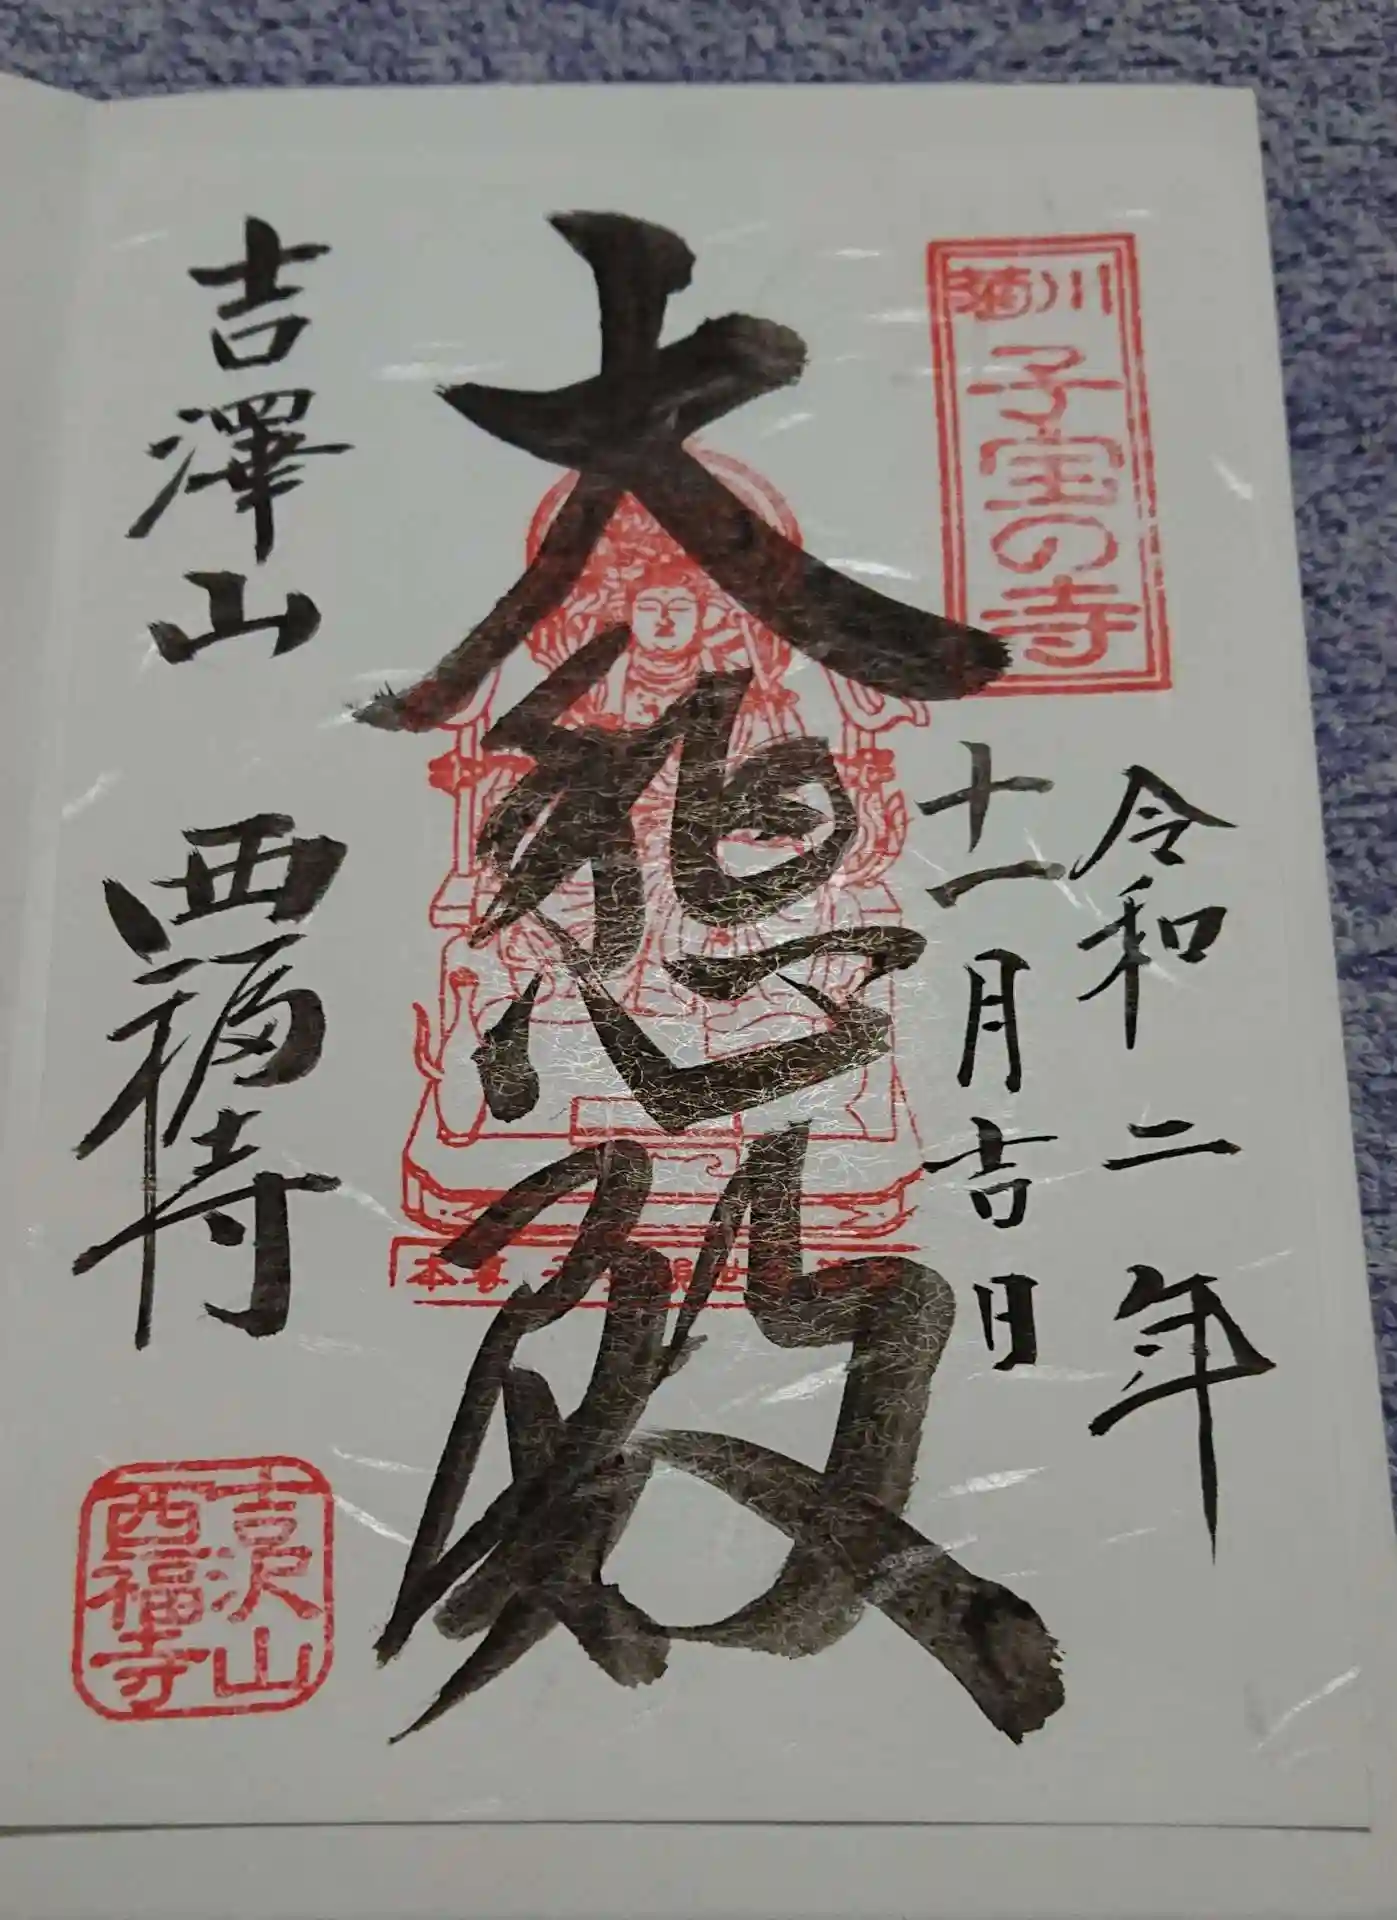 菊川
子宝の寺
令和二年
十一月吉日
大悲殿
本尊
吉澤山 西福寺
吉沢山
西福寺